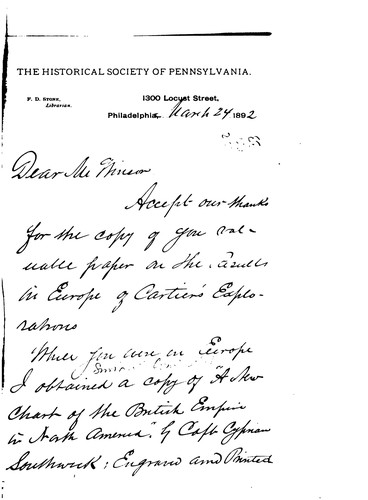 THE HISTORICAL SOCIETY OF PENNSYLVANIA.
F. D. STONE,
Librarian.
1300 Locust Street,
Philadelphia, March 24 1892
Dear Mr Winsor
Accept our thanks
for the copy of you val-
uable paper on the results
in Europe of Cartier's Explo-
rations
When you were in Europe
I obtained a copy of "A New
Chart of the British Empire
in North America" by Capt Cyprian
Southwick: Engraved and Printed